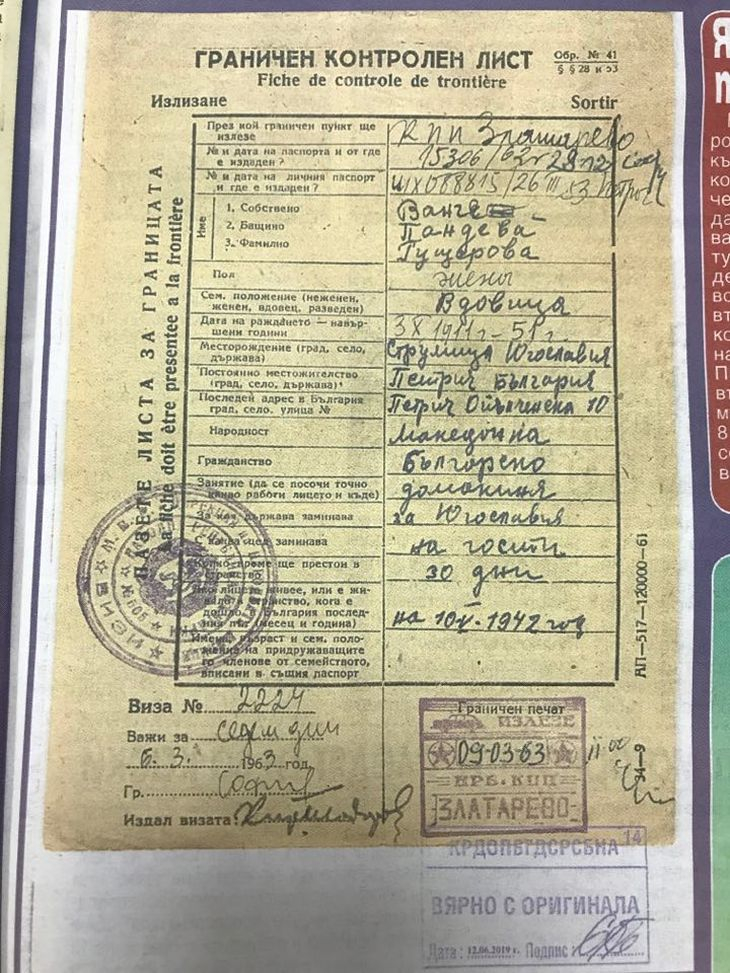 ГРАНИЧЕН КОНТРОЛЕН ЛИСТ
Обр. № 41
§ § 28 и 53
Fiche de controle de trontière
Излизане
Sortir
ПАЗЕТЕ ЛИСТА ЗА ГРАНИЦАТА
La fiche doit être presentee a la frontière
През кой граничен пункт ще излезе
КПП Златарево
№ и дата на паспорта и от где е издаден?
15306/63г
№ и дата на личния паспорт и где е издаден?
088815/26 III 53 Петрич
Име
1. Собствено
Ванге
2. Бащино
Пандева
3. Фамилно
Гущерова
Пол
Сем. положение (неженен, женен, вдовец, разведен)
Вдовица
Дата на раждането — навършени години
3 X 1911 г - 51 г
Месторождение (град, село, държава)
Струмица Югославия
Постоянно местожителство (град, село, държава)
Петрич България
Последей адрес в България град, село, улица №
Петрич Опълченска 10
Народност
Македонка
Гражданство
Българско
Занятие (да се посочи точно какво работи лицето и къде)
домакиня
За коя държава заминава
за Югославия
С каква цел заминава
на гости
Колко време ще престои в странство
30 дни
Ако лицето живее, или е живяло в странство, кога е дошло в България последния път (месец и година)
на 10 V - 1942 год
Имена, възраст и сем. положение на придружаващите го членове от семейството, вписани в същия паспорт
АП—517—120000—61
34—9
Виза № 2224
Важи за седем дни
6. 3. 1963 год.
Гр. София
Издал визата:
Граничен печат
ИЗЛЕЗЕ
09-03-63
НРБ - КПП
ЗЛАТАРЕВО
11 00
КРДОПБГДСРСБНА 14
ВЯРНО С ОРИГИНАЛА
Дата: 12.06.2019 г. Подпис: